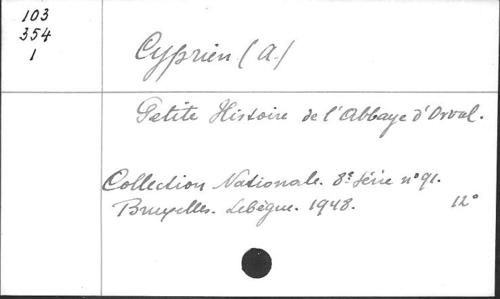 103
354
1
Cyprien (A.)
Petite Histoire de l'Abbaye d'Orval.
Collection Nationale. 8e série n° 91.
Bruxelles. Lebègue. 1948. 12°